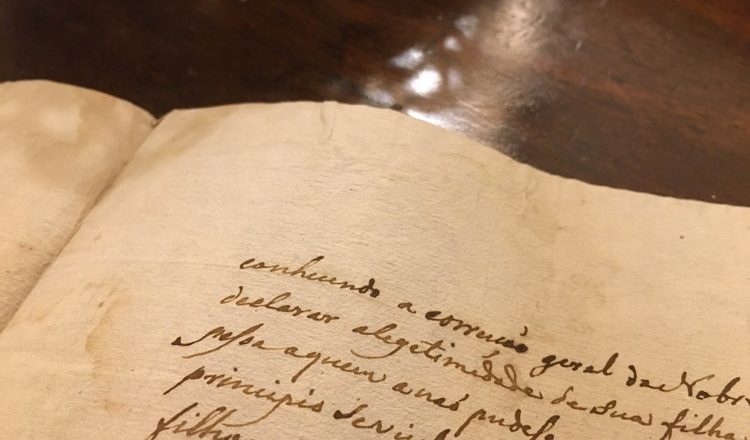 conhecendo a correução geral da Nobre
declarar alegetimidade da Sua filha
pessoa aquem a nao pudesse
principis Servi
filha